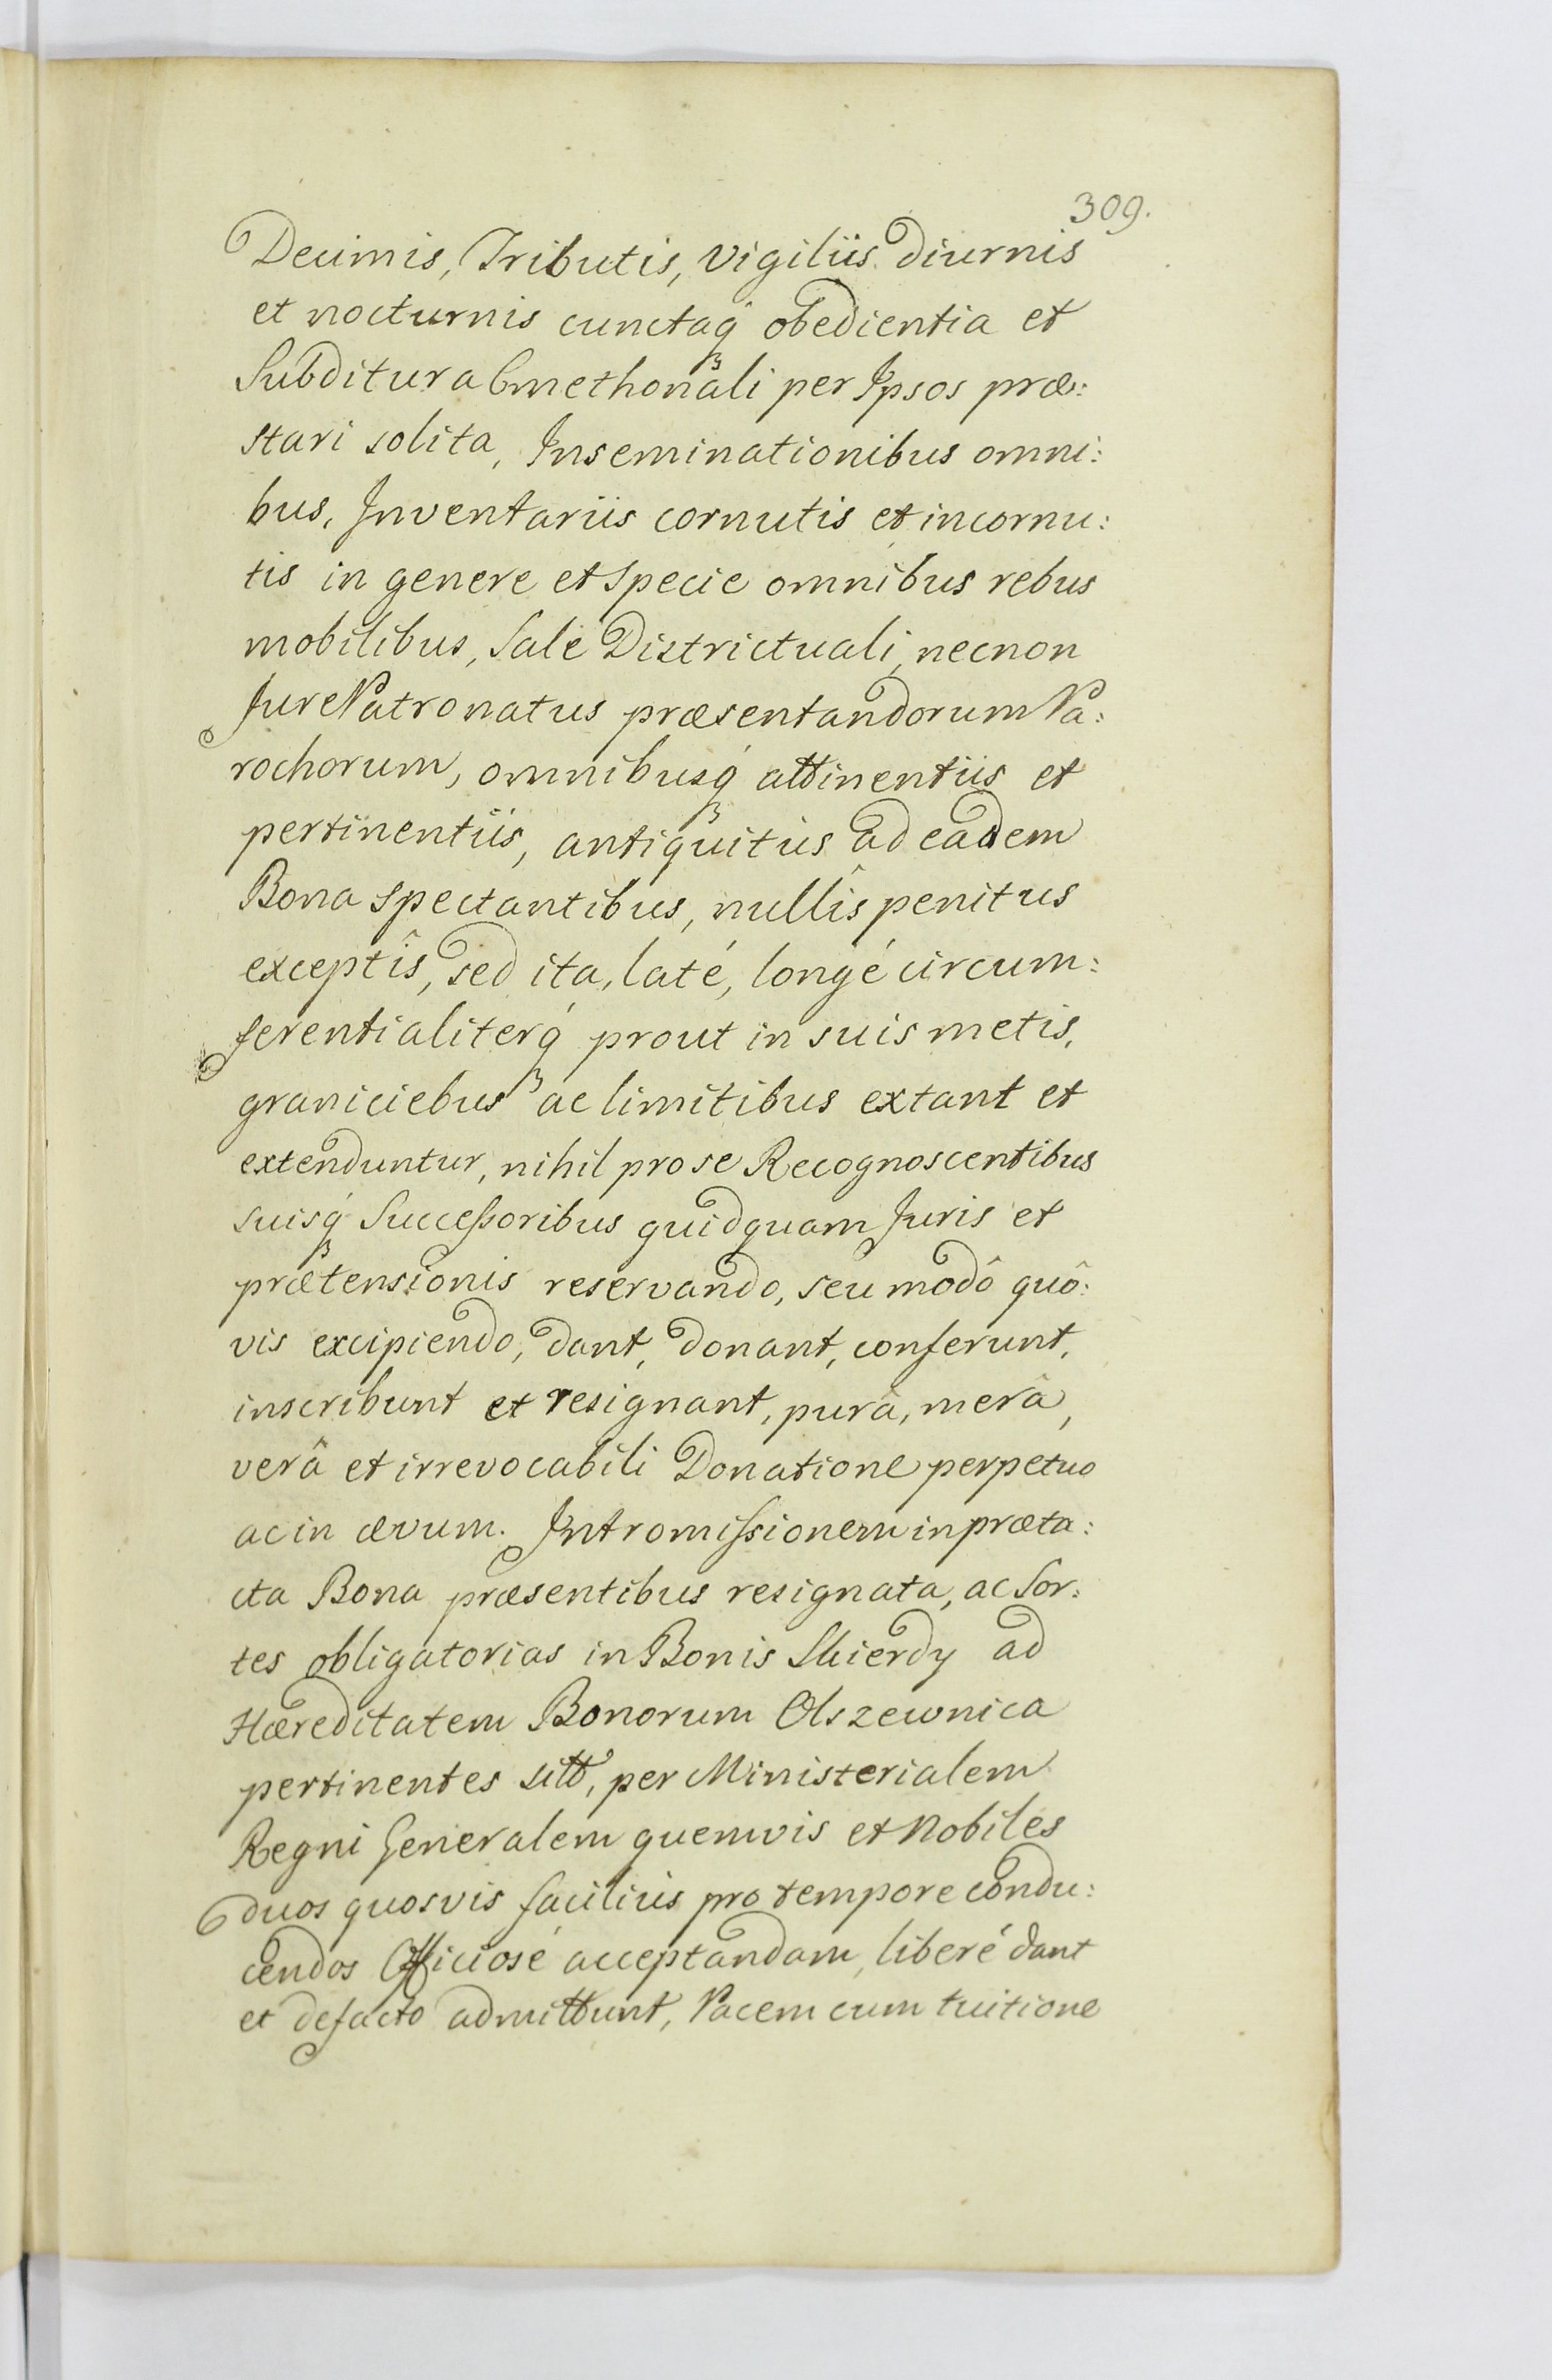 309.
Decimis, Tributis, vigiliis diurnis
et nocturnis cunctaq́ obedientia et
Subditura Cmethonali per Ipsos præ:
stari solita, Inseminationibus omni:
bus, Inventariis cornutis et incornu:
tis in genere et specie omnibus rebus
mobilibus, Sale Districtuali, necnon
Jure Patronatus præsentandorum Pa:
rochorum, omnibusq́ attinentiis et
pertinentiis, antiquitùs ad eadem
Bona spectantibus, nullîs penitus
exceptîs, sed ita, laté, longé circum:
ferentialiterq́ prout in suis metis,
graniciebus ac limitibus extant et
extenduntur, nihil pro se Recognoscentibus
suisq́ Successoribus quidquam Juris et
prætensionis reservando, seu modô quô:
vis excipiendo, dant, donant, conferunt,
inscribunt et resignant, purâ, merâ,
verâ et irrevocabili Donatione perpetuo
ac in ævum. Intromissionem in præta:
cta Bona præsentibus resignata, ac Sor:
tes obligatorias in Bonis Skierdy ad
Hæreditatem Bonorum Olszewnica
pertinentes sitt, per Ministerialem
Regni Generalem quemvis et Nobiles
duos quosvis faciliùs pro tempore condu:
cendos Officiosé acceptandam, liberé dant
et defacto admittunt, Pacem cum tuitione